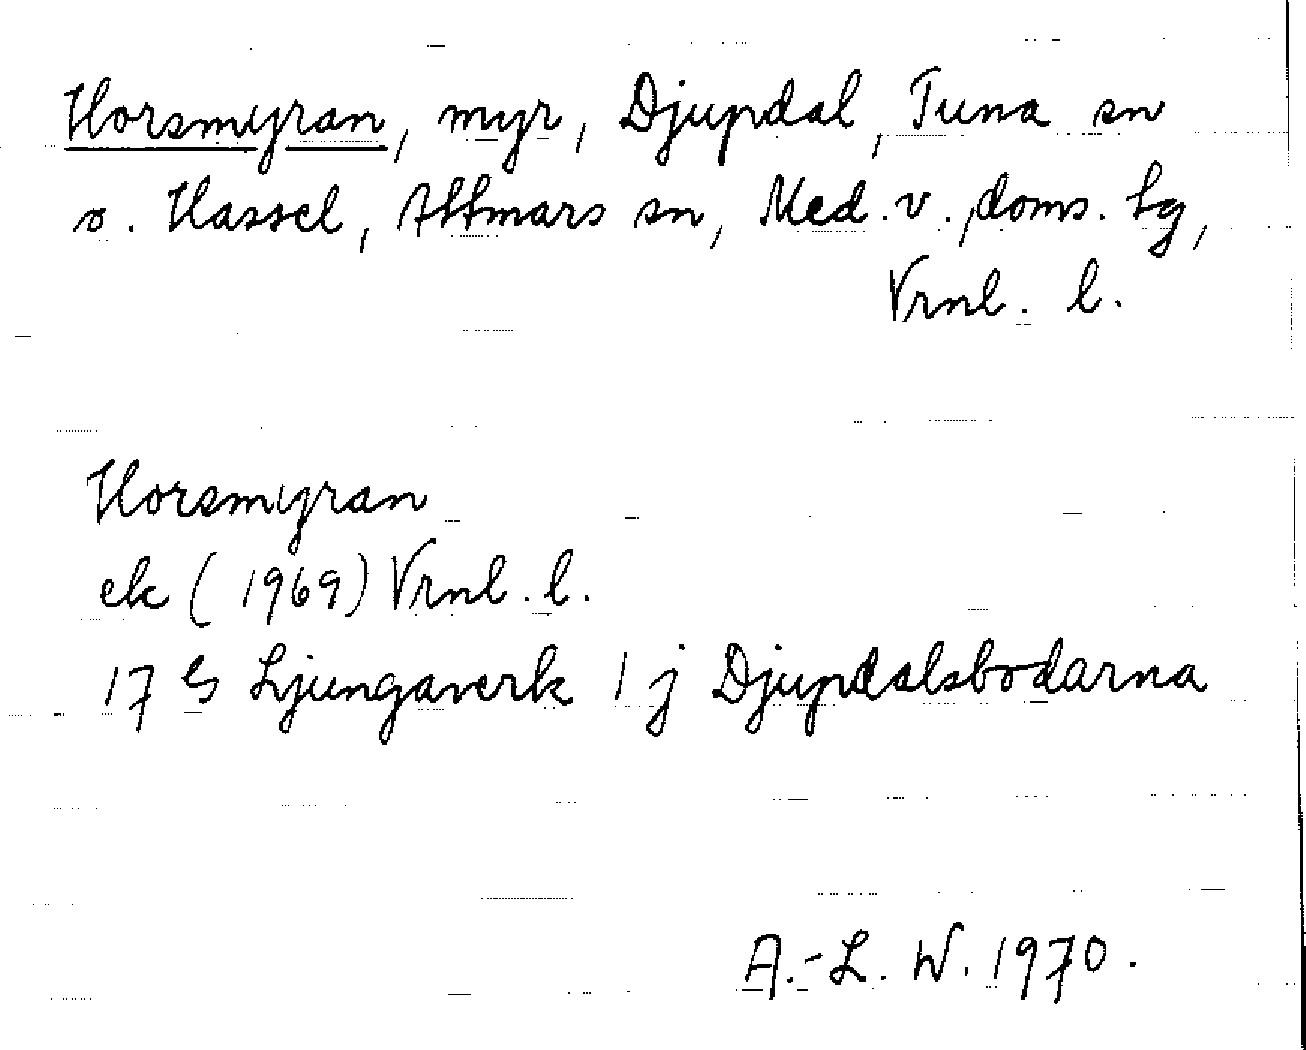 Horsmyran, myr, Djupdal, Tuna sn
o. Hassel, Attmars sn, Med. v. doms. tg,
Vrnl. l.
Horsmyran
ek (1969) Vrnl. l.
17 G Ljungaverk 1 j Djupdalsbodarna
A.-L. W. 1970.